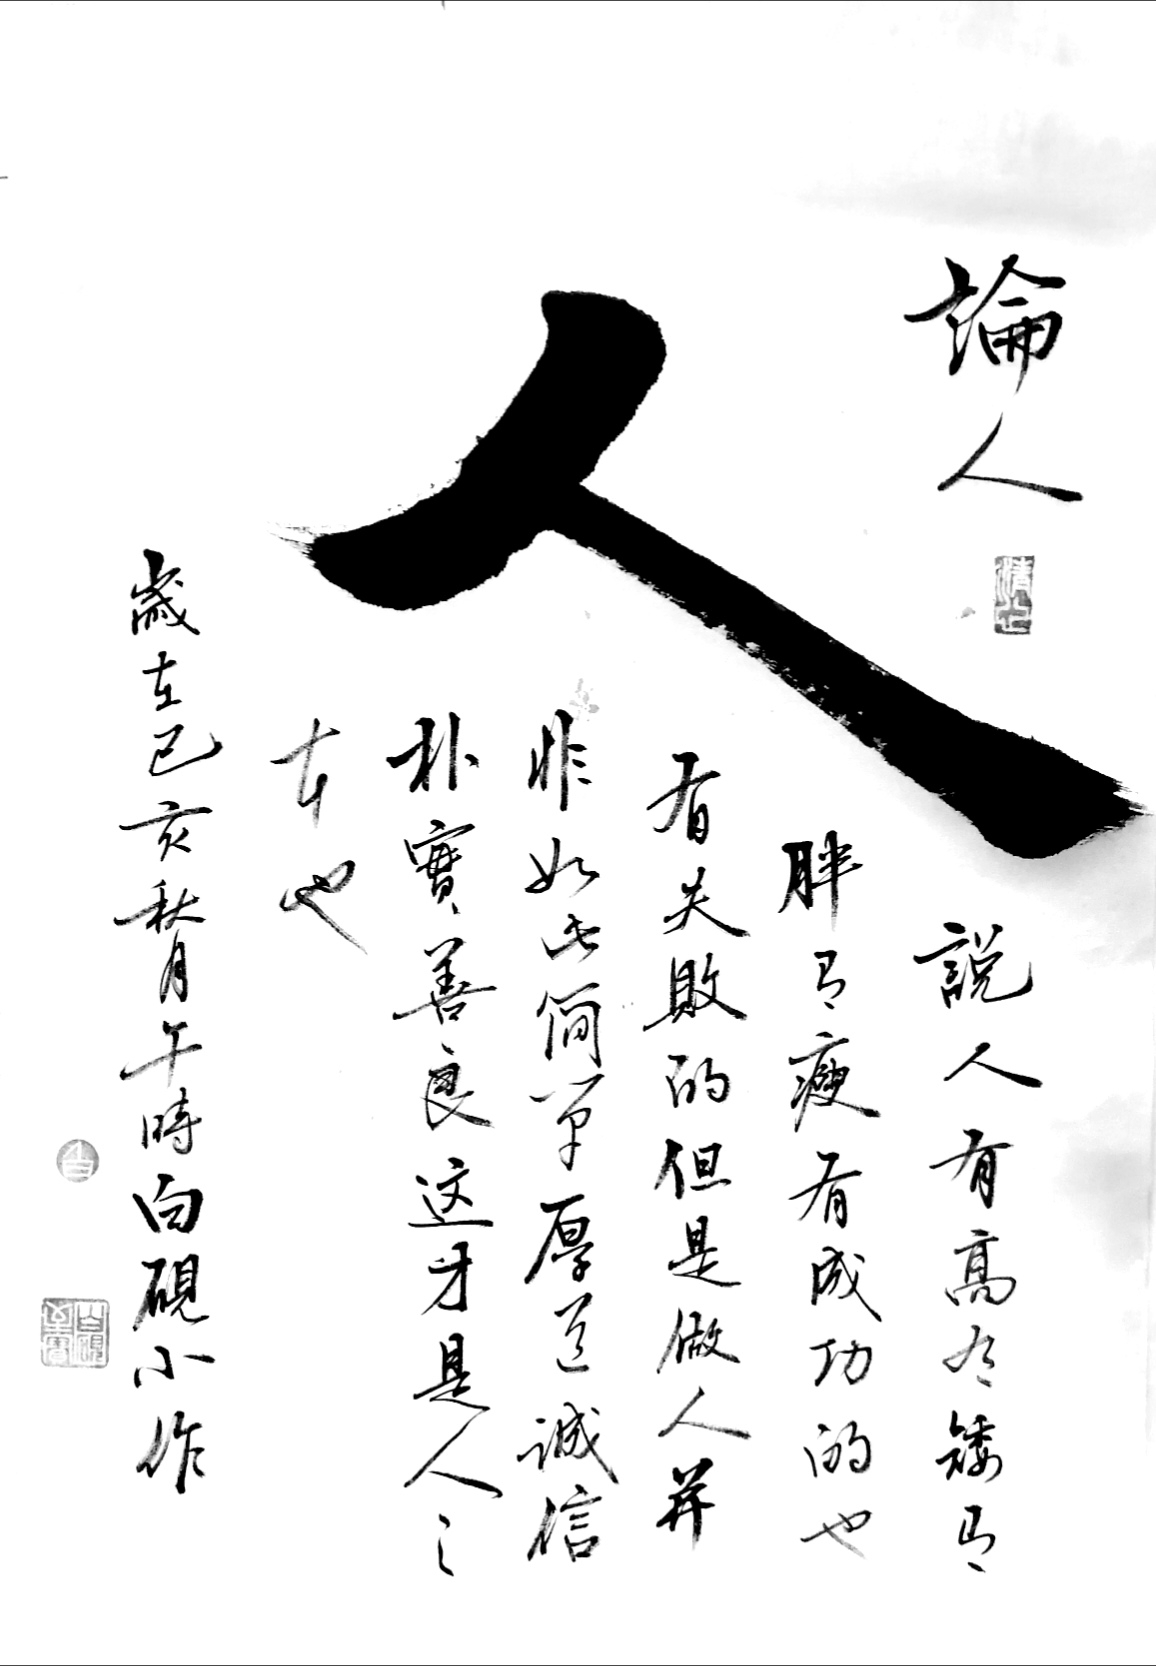 論人
人
說人有高有矮有
胖有瘦有成功的也
有失敗的但是做人并
非如此簡單厚道誠信
朴實善良这才是人之
本也
歲在己亥秋月午時白硯小作